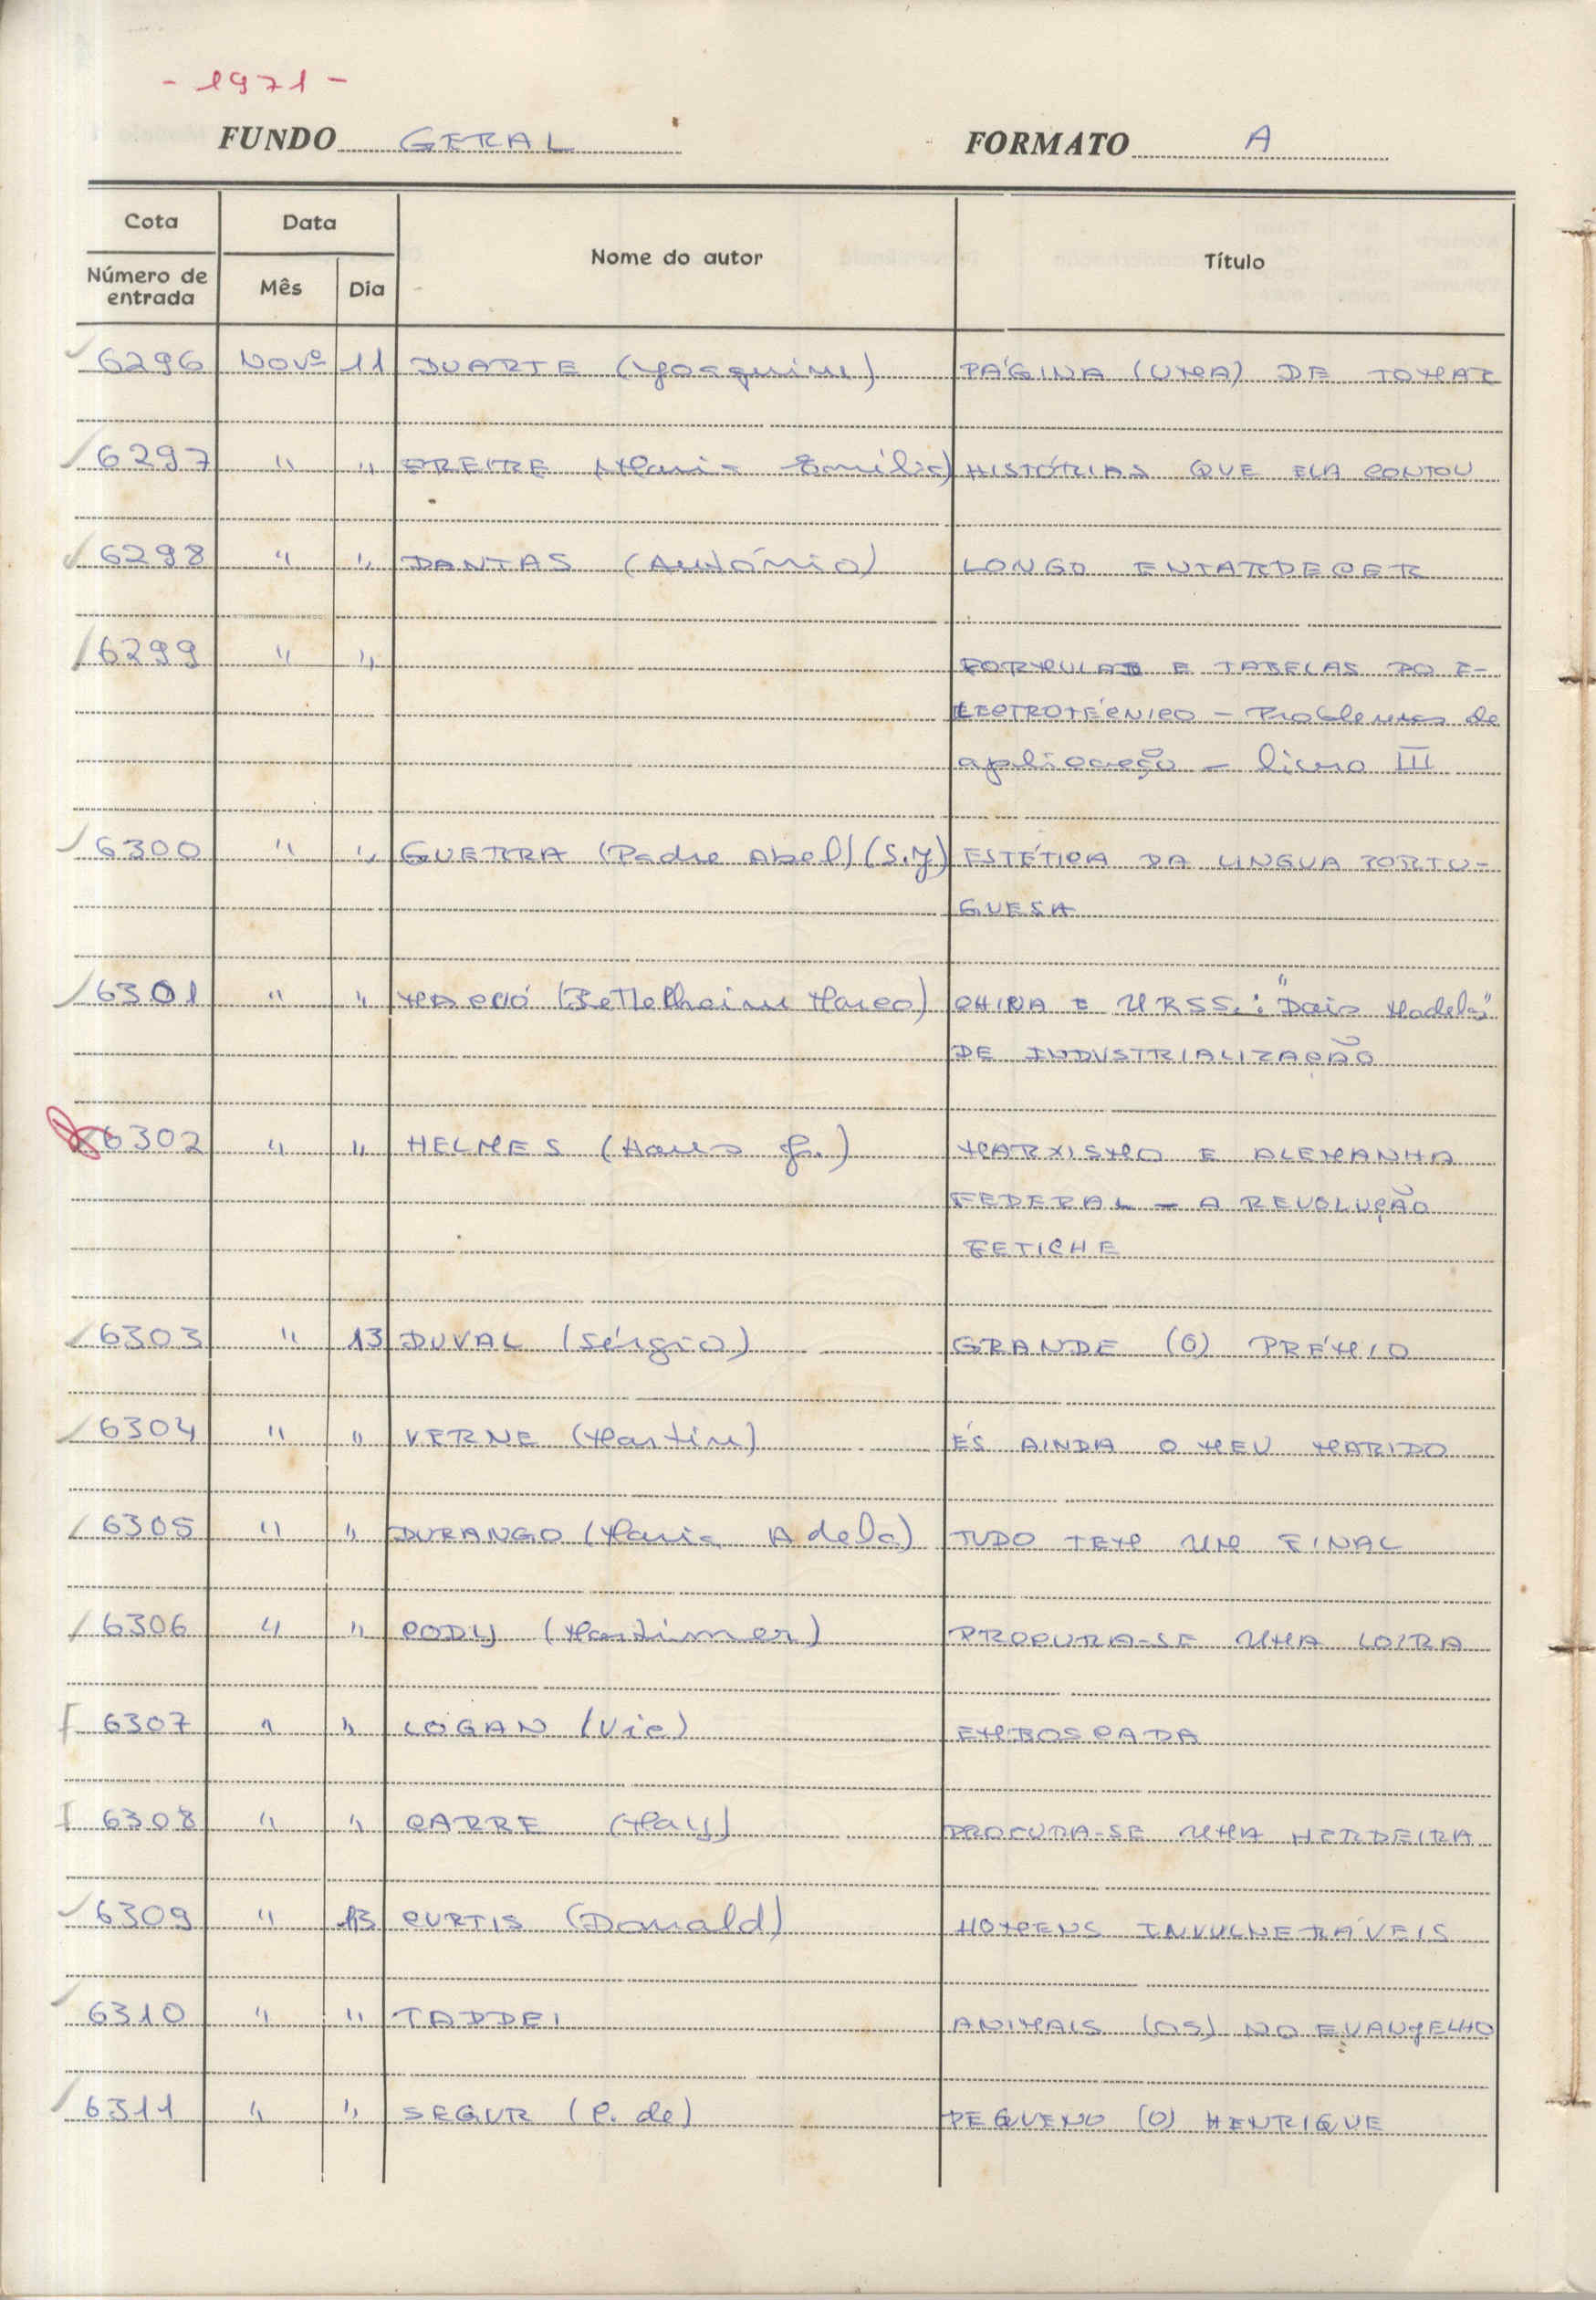 - 1971 -
FUNDO GERAL FORMATO A
Cota Data Nome do autor Título
Número de entrada Mês Dia
6296 Novº 11 DUARTE (Joaquim) PÁGINA (UMA) DE TOMAR
6297 " " FREIRE (Maria Emília) HISTÓRIAS QUE ELA CONTOU
6298 " " DANTAS (António) LONGO ENTARDECER
6299 " " FORMULAS E TABELAS DO E-
LECTROTÉCNICO - Problemas de
aplicação - livro III
6300 " " GUERRA (Padre Abel) (S.J) ESTÉTICA DA LINGUA PORTU-
GUESA
6301 " " (Bettelheim Marco) CHINA E URSS.: "Dois Modelos"
DE INDUSTRIALIZAÇÃO
6302 " " HELMES (Hans G.) MARXISMO E ALEMANHA
FEDERAL - A REVOLUÇÃO
FETICHE
6303 " 13 DUVAL (Sérgio) GRANDE (O) PRÉMIO
6304 " " VERNE (Martin) ÉS AINDA O MEU MARIDO
6305 " " DURANGO (Maria Adela) TUDO TEM UM FINAL
6306 " " CODY (Mortimer) PROCURA-SE UMA LOIRA
6307 " " LOGAN (Vic) EMBOSCADA
6308 " " CARRE (May) PROCURA-SE UMA HERDEIRA
6309 " 13 CURTIS (Donald) HOMENS INVULNERÁVEIS
6310 " " TADDEI ANIMAIS (OS) NO EVANJELHO
6311 " " SEGUR (C. de) PEQUENO (O) HENRIQUE